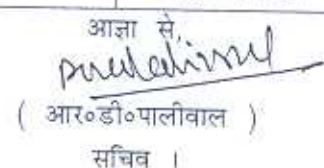 आज्ञा से,
( आर०डी०पालीवाल )
सचिव ।